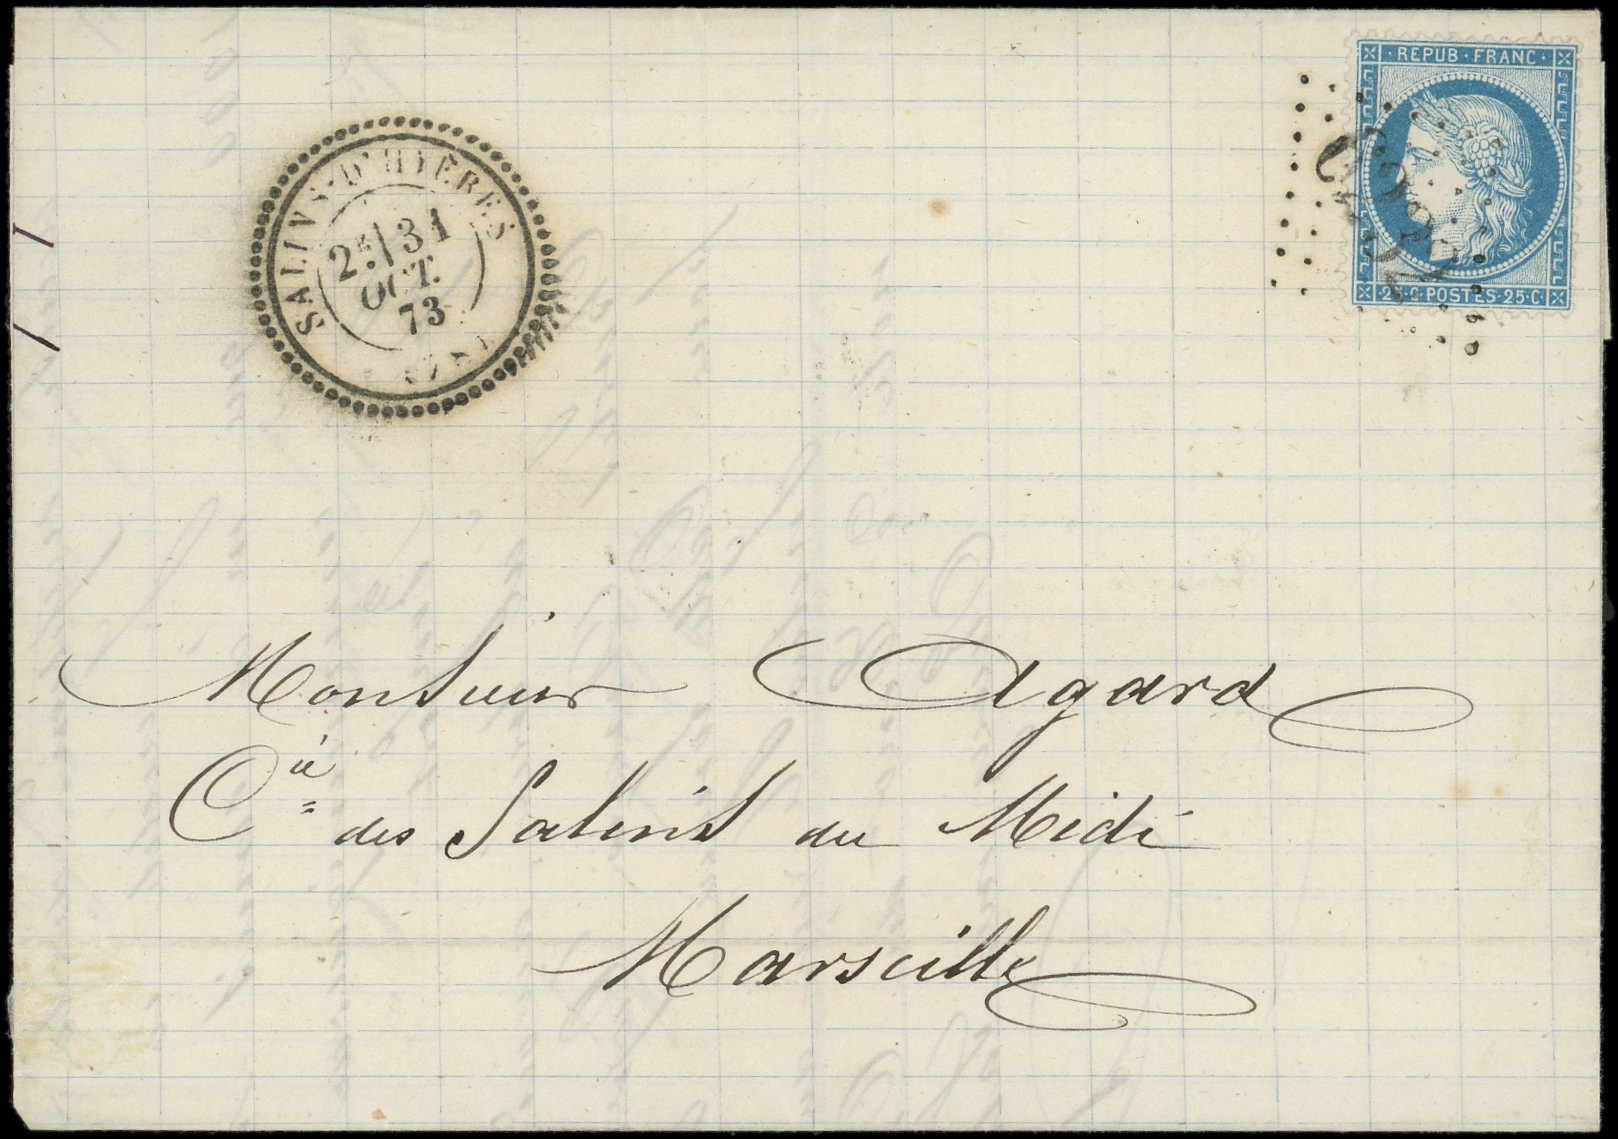 REPUB·FRANC·
25·C·POSTES·25·C·
SALINS-D'HIÈRES
2E/31
OCT.
73
Monsieur Agard
Cie des Salins du Midi
Marseille